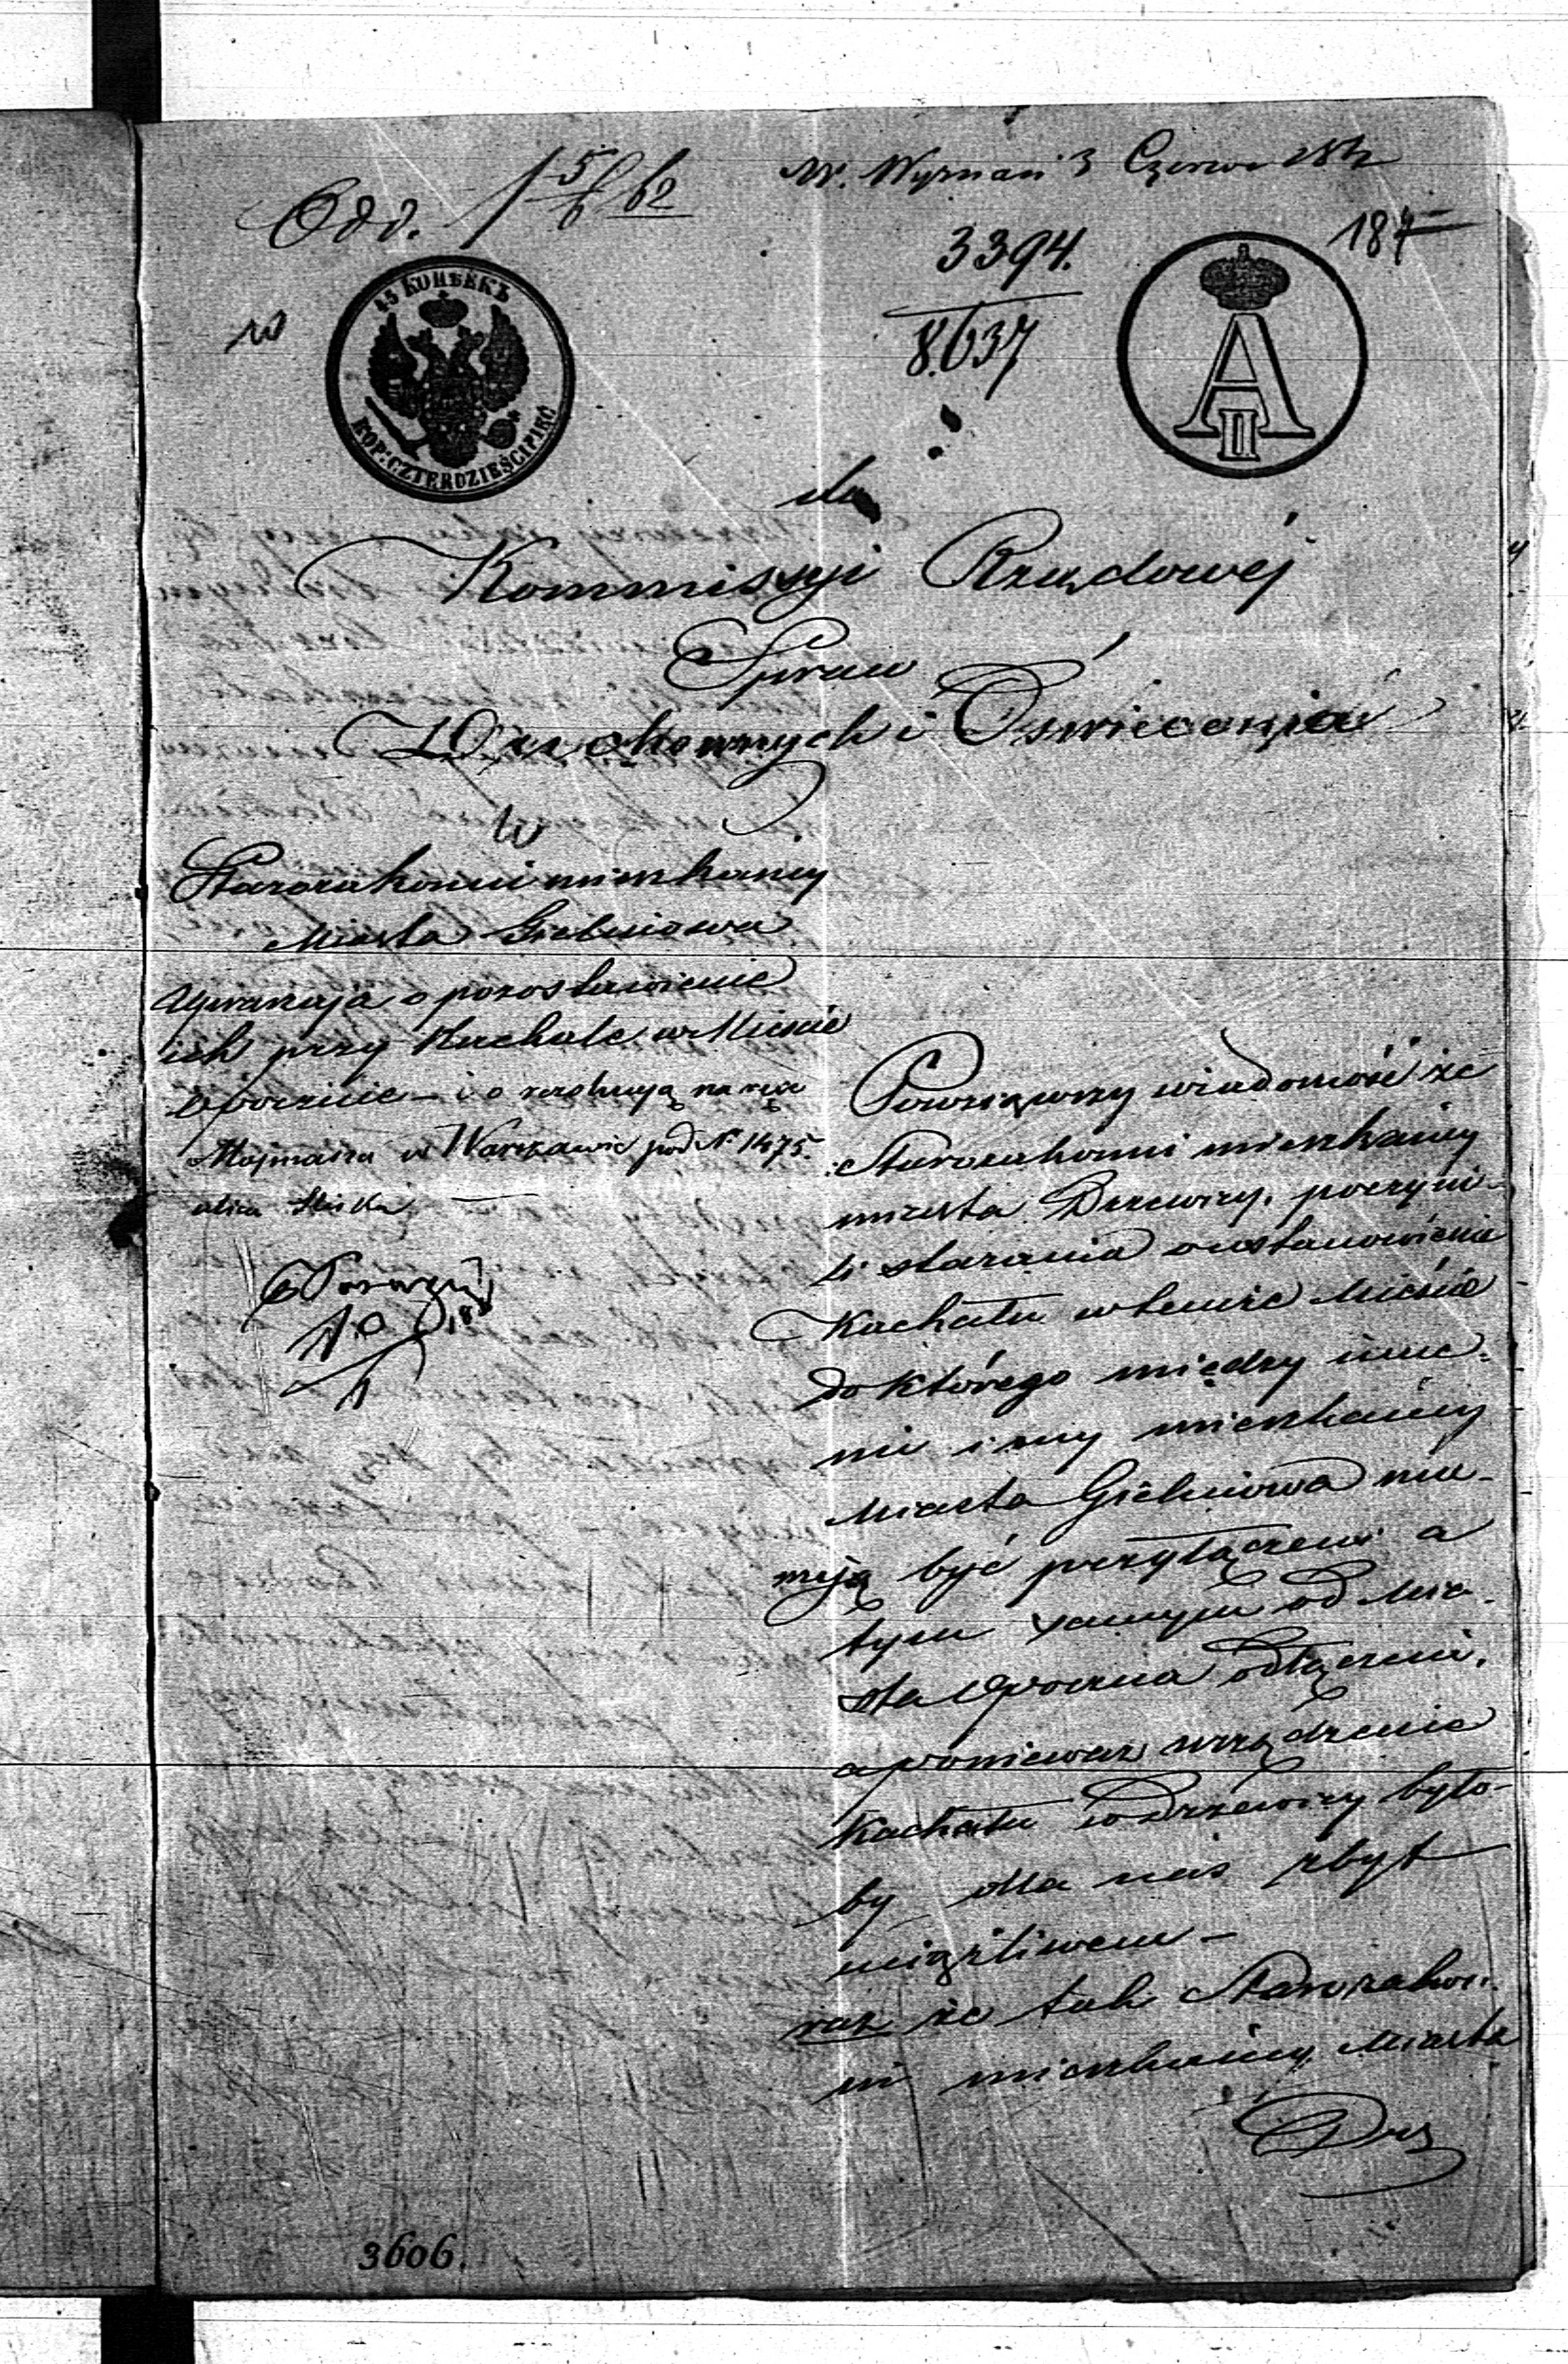 Odd. 5/6 62
W. Wyznań 3 Czerwca 1862
187
3394.
8.637
45 КОПѢЕКЪ
KOP: CZTERDZIEŚCI PIĘĆ
A II
do
Kommissyi Rządowéj
Spraw
Duchownych i Oświecenia
W
Starozakonni mieszkańcy
Miasta Gielniowa
upraszają o pozostawienie
ich przy Kachale w Mieście
Opocznie – i o rezolucyą na ręce
Majmaiza w Warszawie pod Nr 1475.
ulica Śliska
Powziąwszy wiadomość że
Starozakonni mieszkańcy
miasta Drzewicy, poczyni-
li starania o ustanowienie
Kachału w temże Mieście
do którego między inne-
mi i my mieszkańcy
Miasta Gielniowa mie-
mają być przyłączeni a
tym samym od Mia-
sta Opoczna odłączeni,
a ponieważ urządzenie
Kachału w Drzewicy było-
by dla nas zbyt
uciążliwem –
raz że tak Starozakon-
ni mieszkańcy Miasta
Drz
3606.